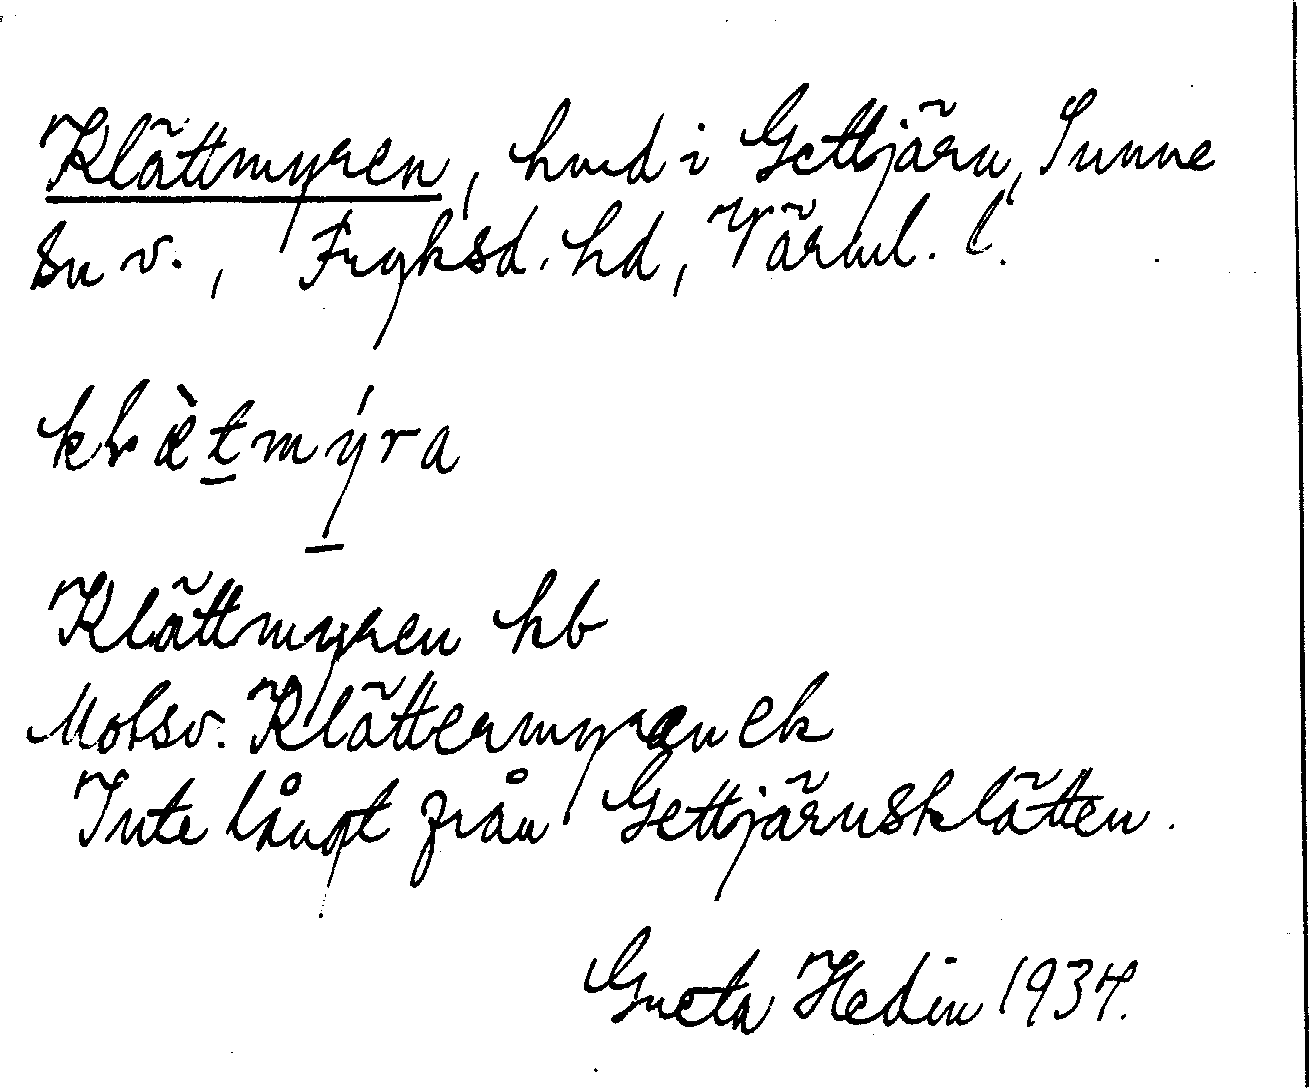 Klättmyren, hmd i Gettjärn, Sunne
sn v., Fryksd. hd, Värml. l.
kɫæ̀tmýra
Klättmyren kb
Motsv. Klättermyran ek
Inte långt från Gettjärnsklätten.
Greta Hedin 1934.